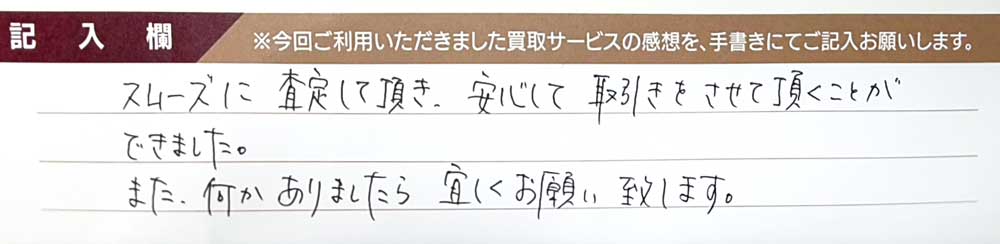 記入欄 ※今回ご利用いただきました買取サービスの感想を、手書きにてご記入お願いします。
スムーズに 査定して頂き、安心して 取引きを させて頂くことが
できました。
また、何か ありましたら 宜しく お願い 致します。